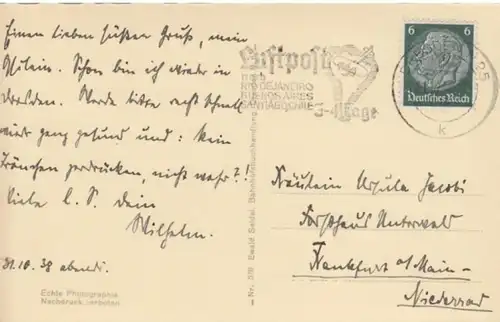 Einen lieben süßen Gruß, mein
Schon bin ich wieder in
Dresden. Werde bitte recht schnell
wieder ganz gesund und: kein
Tränchen zerdrücken, nicht wahr?!
Liebe dein
Wilhelm.
31.10.38 abends.
Echte Photographie
Nachdruck verboten
Ewald Seidel, Bahnhofsbuchhandlung
Luftpost
nach
RIO DE JANEIRO
BUENOS AIRES
SANTIAGO CHILE
3-4 Tage
6 6
Deutsches Reich
k
Fräulein Ursula Jacobi
Forsthaus Unterwald
Frankfurt a/Main-
Niederrad